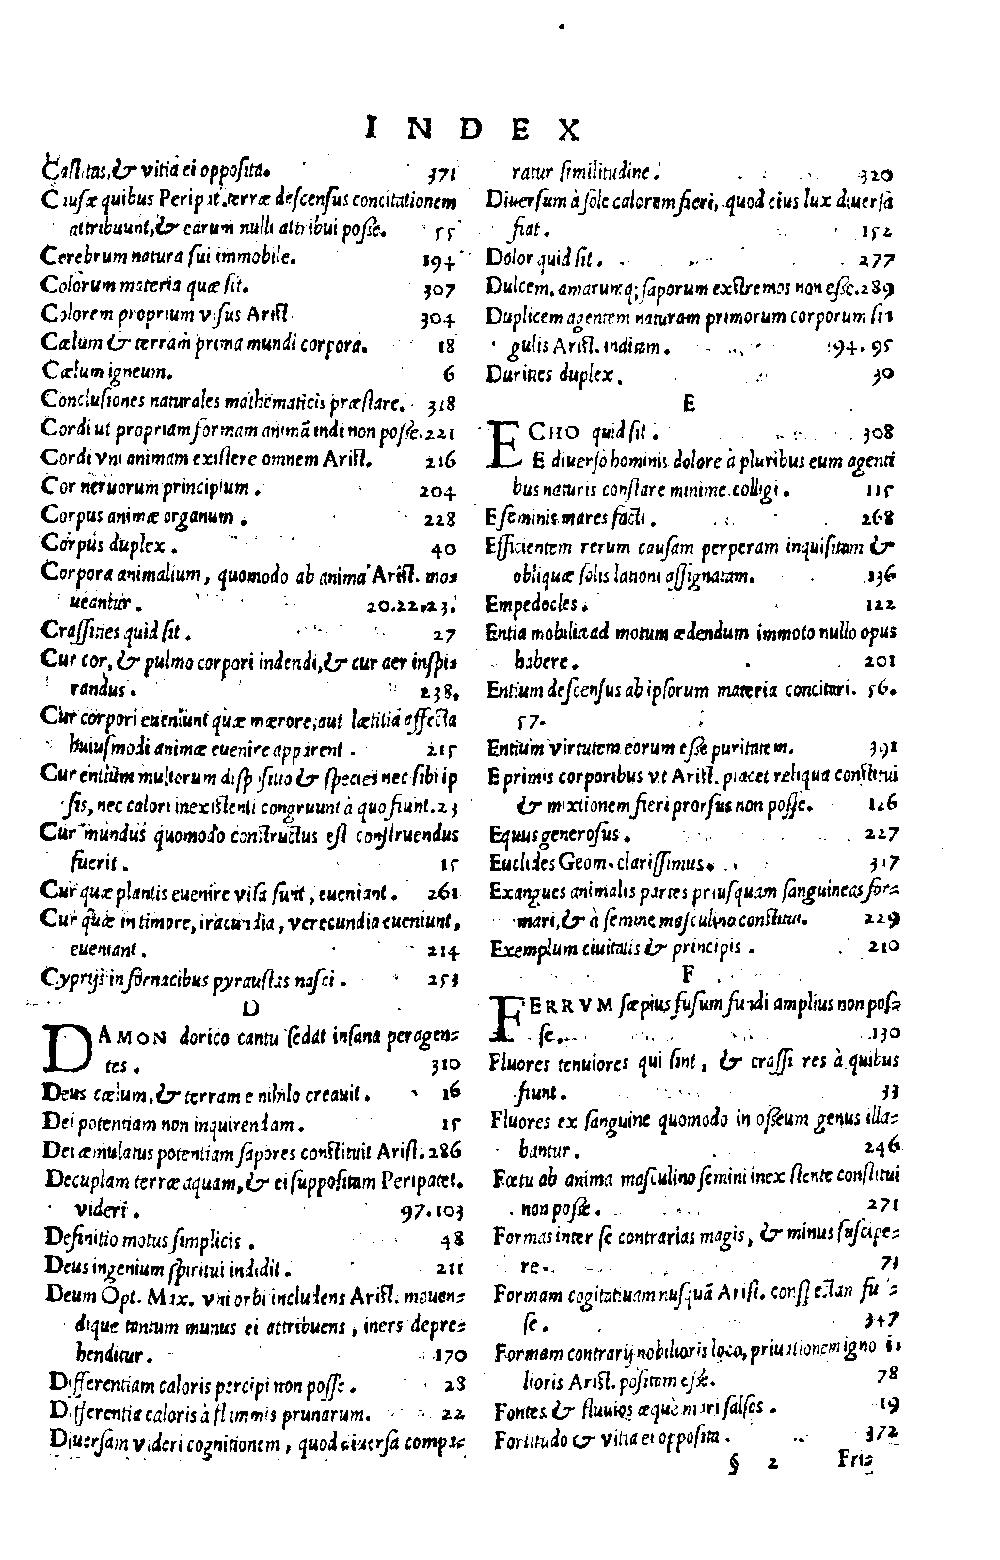 INDEX
Castitas, & vitia ei opposita. 371
Causæ quibus Peripat. terræ descensus concitationem
attribuunt, & earum nulli attribui posse. 55
Cerebrum natura sui immobile. 194
Colorum materia quæ sit. 307
Colorem proprium visus Arist. 304
Cælum & terram prima mundi corpora. 18
Cælum igneum. 6
Conclusiones naturales mathematicis præstare. 318
Cordi ut propriam formam animã indi non posse. 221
Cordi vni animam existere omnem Arist. 216
Cor neruorum principium. 204
Corpus animæ organum. 228
Corpus duplex. 40
Corpora animalium, quomodo ab anima Arist. mo-
ueantur. 20.22.23.
Crassities quid sit. 27
Cur cor, & pulmo corpori indendi, & cur aer inspi-
randus. 238.
Cur corpori eueniunt quæ mærore, aut lætitia affecta
huiusmodi animæ euenire apparent. 215
Cur entium multorum dispositio & species nec sibi ip
sis, nec calori inexistenti congruunt à quo fiunt. 23
Cur mundus quomodo constructus est construendus
fuerit. 15
Cur quæ plantis euenire visa sunt, eueniant. 261
Cur quæ in timore, iracundia, verecundia eueniunt,
eueniant. 214
Cyprijs in fornacibus pyraustas nasci. 253
D
DAMON dorico cantu sedat insana peragen-
tes. 310
Deus cælum, & terram e nihilo creauit. 16
Dei potentiam non inquirendam. 15
Dei æmulatus potentiam sapores constituit Arist. 286
Decuplam terræ aquam, & ei suppositam Peripatet.
videri. 97.103
Definitio motus simplicis. 48
Deus ingenium spiritui indidit. 211
Deum Opt. Max. vni orbi includens Arist. mouen-
dique tantum munus ei attribuens, iners depre-
henditur. 170
Differentiam caloris percipi non posse. 28
Differentia caloris à flammis prunarum. 22
Diuersam videri cognitionem, quod diuersa compa-
ratur similitudine. 320
Diuersum à sole calorem fieri, quod eius lux diuersa
fiat. 152
Dolor quid sit. 277
Dulcem, amarumq; saporum extremos non esse. 289
Duplicem agentem naturam primorum corporum sin
gulis Arist. inditam. 94.95
Durities duplex. 30
E
ECHO quid sit. 308
E diuerso hominis dolore à pluribus eum agenti
bus naturis constare minime colligi. 115
E seminis mares facti. 268
Efficientem rerum causam perperam inquisitam &
obliquæ solis lationi assignatam. 136
Empedocles. 122
Entia mobilia ad motum ædendum immoto nullo opus
habere. 201
Entium descensus ab ipsorum materia concitari. 56.
57.
Entium virtutem eorum esse puritatem. 391
E primis corporibus vt Arist. placet reliqua constitui
& mixtionem fieri prorsus non posse. 126
Equus generosus. 227
Euclides Geom. clarissimus. 317
Exangues animalis partes priusquam sanguineas for-
mari, & à semine masculino constitui. 229
Exemplum ciuitatis & principis. 210
F
FERRVM sæpius fusum fundi amplius non pos-
se. 130
Fluores tenuiores qui sint, & crassi res à quibus
fiunt. 33
Fluores ex sanguine quomodo in osseum genus illa-
bantur. 246
Fœtu ab anima masculino semini inexistente constitui
non posse. 271
Formas inter se contrarias magis, & minus suscipe-
re. 71
Formam cogitatiuam nusquã Arist. consectan
se. 347
Formam contrarij nobilioris loco, priuationem igno
lioris Arist. positam esse. 78
Fontes & fluuios æque mari salsos. 19
Fortitudo & vitia ei opposita. 372
§ 2 Fri-